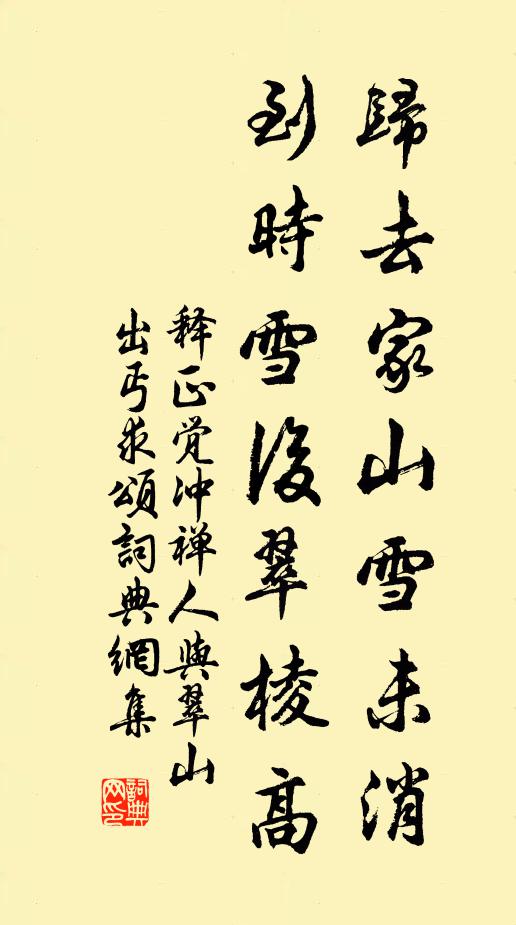 歸去家山雪未消
到時雪後翠棱高
释正觉沖禅人與翠山
出丐求頌詞典網集
詞典
网印